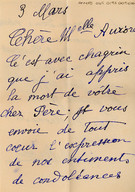 9 Mars
Chère Melle Aurore
C'est avec chagrin
que j'ai appris
la mort de votre
cher Père. Je vous
envoie de tout
cœur l'expression
de nos sentiments
de condoléances